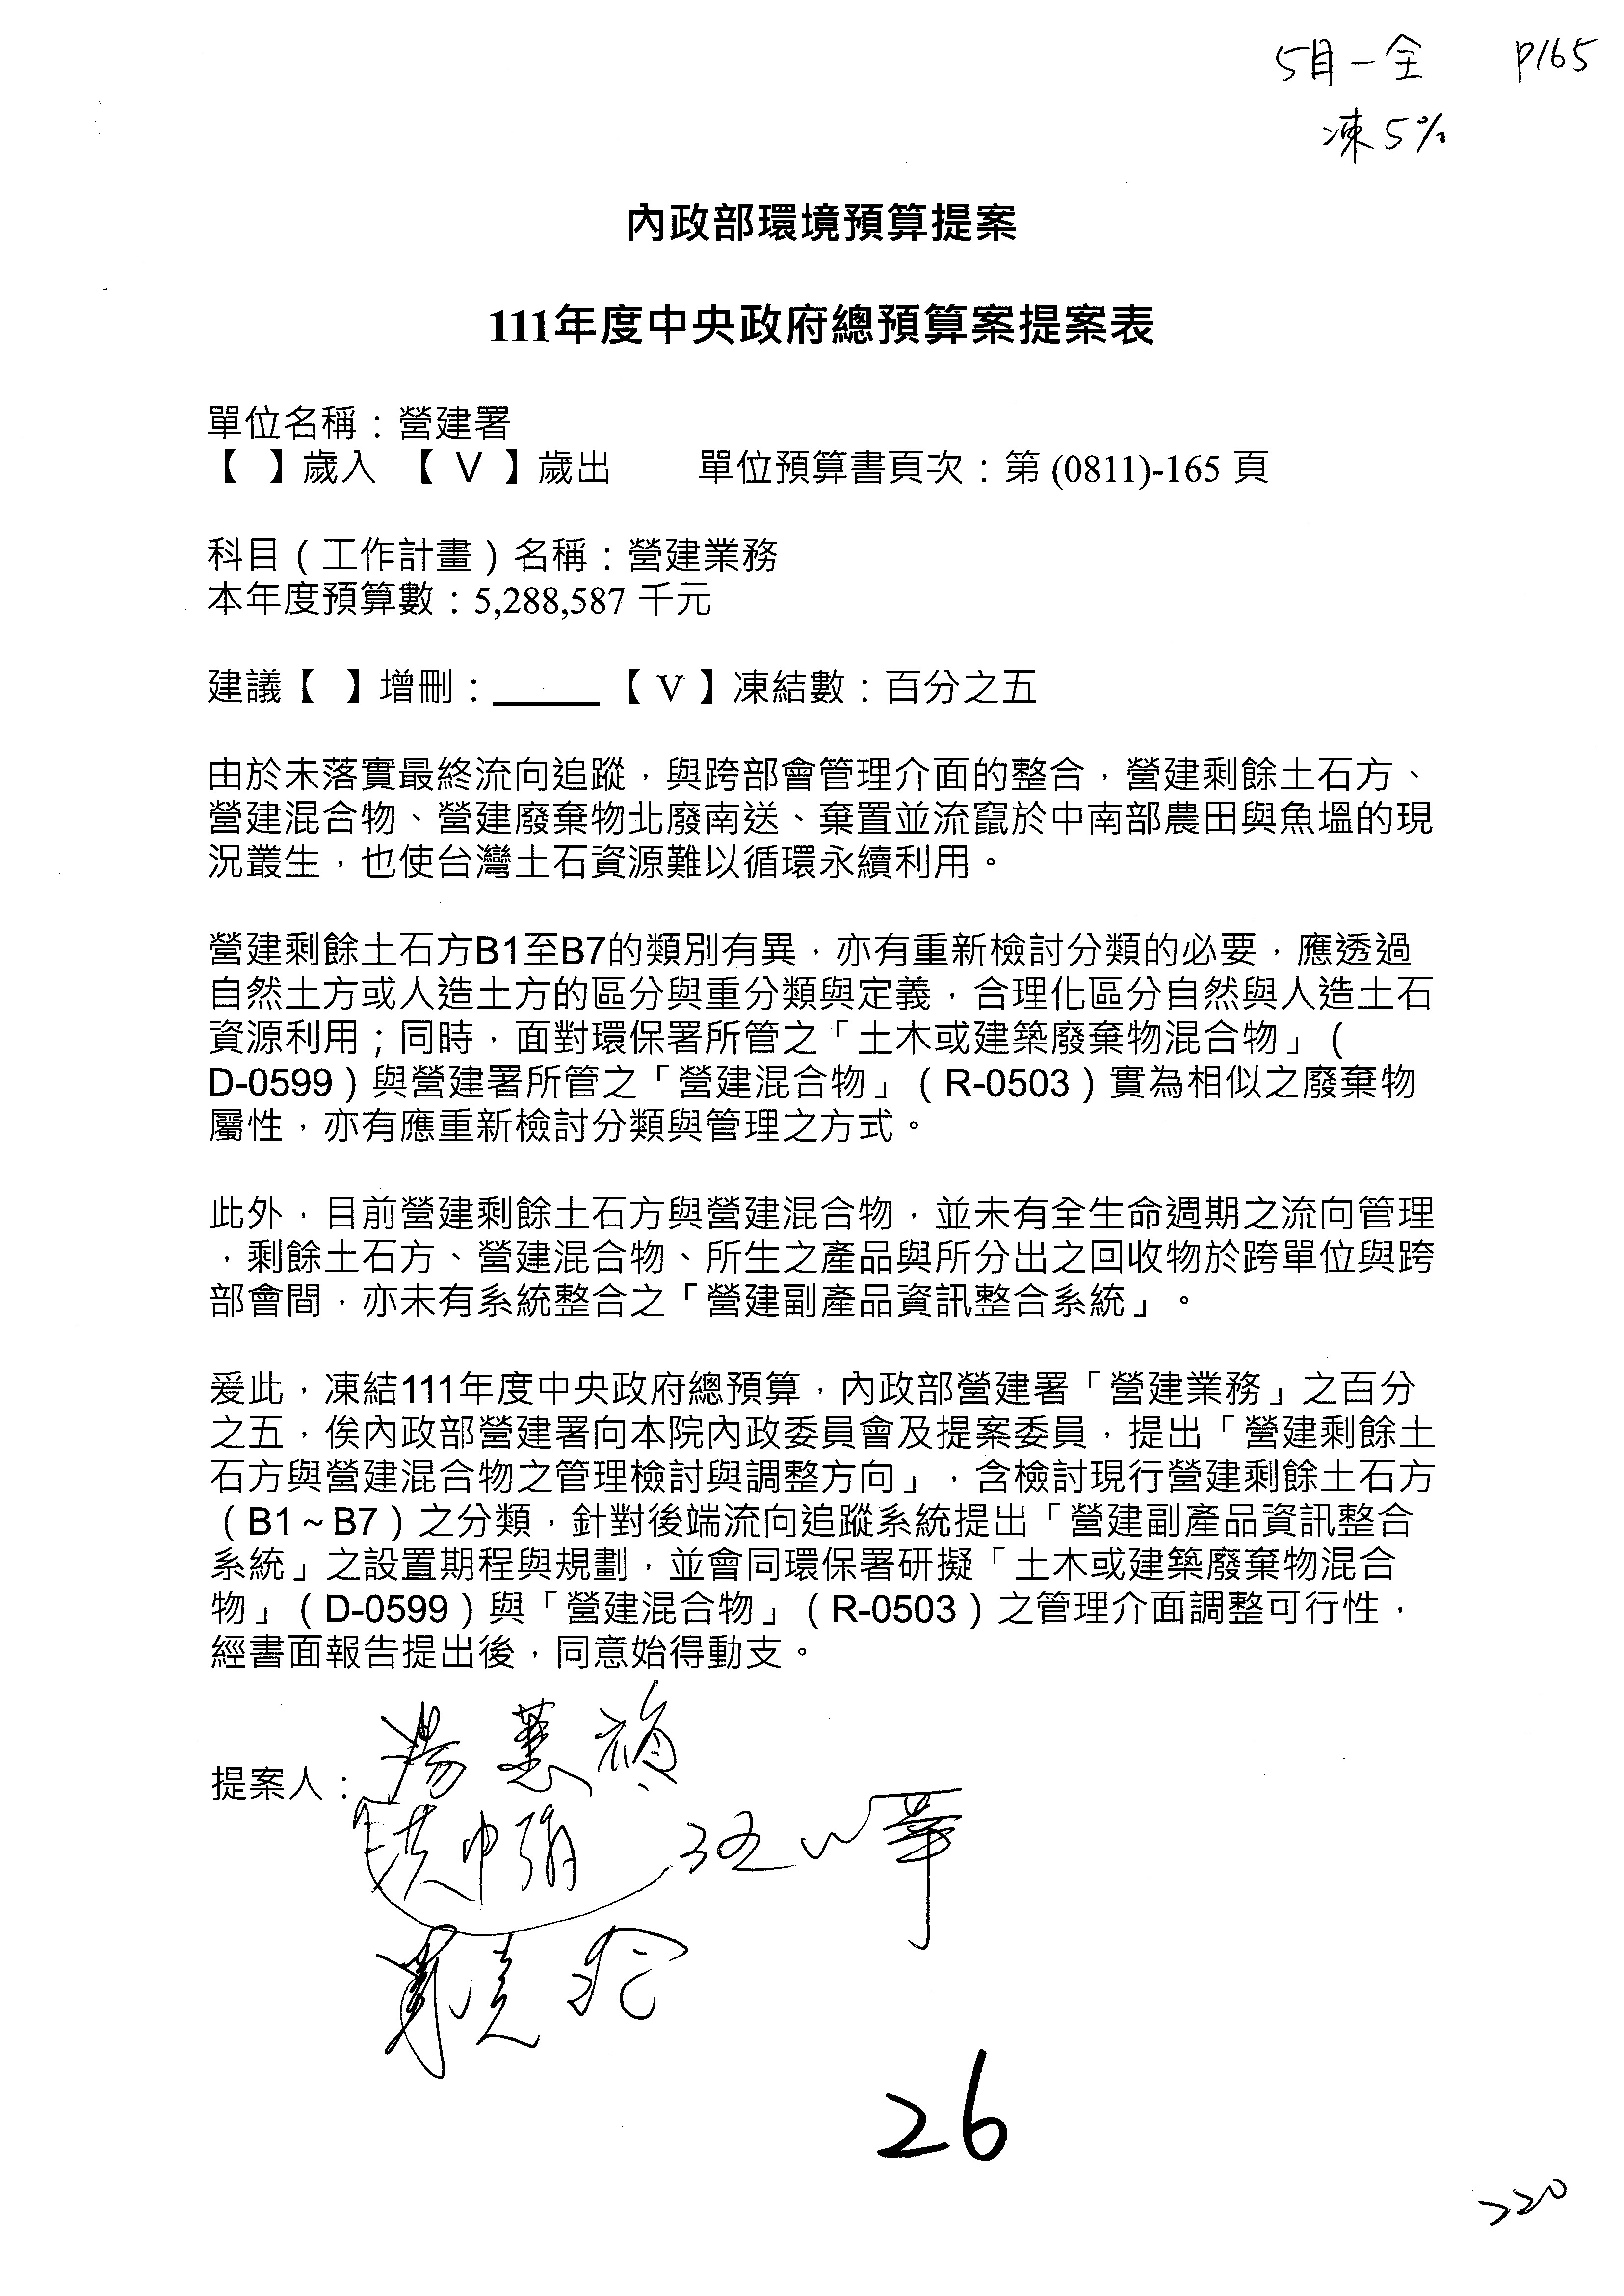 5目一全 P165
凍5%
內政部環境預算提案
111年度中央政府總預算案提案表
單位名稱：營建署
【 】歲入 【 V 】歲出 單位預算書頁次：第 (0811)-165 頁
科目（工作計畫）名稱：營建業務
本年度預算數：5,288,587 千元
建議【 】增刪：_____ 【 V 】凍結數：百分之五
由於未落實最終流向追蹤，與跨部會管理介面的整合，營建剩餘土石方、
營建混合物、營建廢棄物北廢南送、棄置並流竄於中南部農田與魚塭的現
況叢生，也使台灣土石資源難以循環永續利用。
營建剩餘土石方B1至B7的類別有異，亦有重新檢討分類的必要，應透過
自然土方或人造土方的區分與重分類與定義，合理化區分自然與人造土石
資源利用；同時，面對環保署所管之「土木或建築廢棄物混合物」（
D-0599）與營建署所管之「營建混合物」（R-0503）實為相似之廢棄物
屬性，亦有應重新檢討分類與管理之方式。
此外，目前營建剩餘土石方與營建混合物，並未有全生命週期之流向管理
，剩餘土石方、營建混合物、所生之產品與所分出之回收物於跨單位與跨
部會間，亦未有系統整合之「營建副產品資訊整合系統」。
爰此，凍結111年度中央政府總預算，內政部營建署「營建業務」之百分
之五，俟內政部營建署向本院內政委員會及提案委員，提出「營建剩餘土
石方與營建混合物之管理檢討與調整方向」，含檢討現行營建剩餘土石方
（B1～B7）之分類，針對後端流向追蹤系統提出「營建副產品資訊整合
系統」之設置期程與規劃，並會同環保署研擬「土木或建築廢棄物混合
物」（D-0599）與「營建混合物」（R-0503）之管理介面調整可行性，
經書面報告提出後，同意始得動支。
提案人：湯蕙禎
26
220